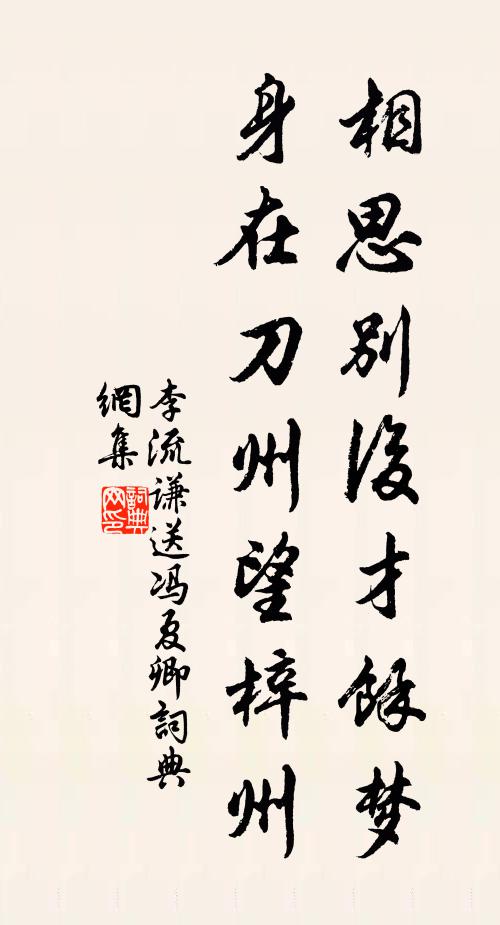 相思别後才餘梦
身在刀州望梓州
李流谦送冯夏卿詞典
網集
詞典
网印